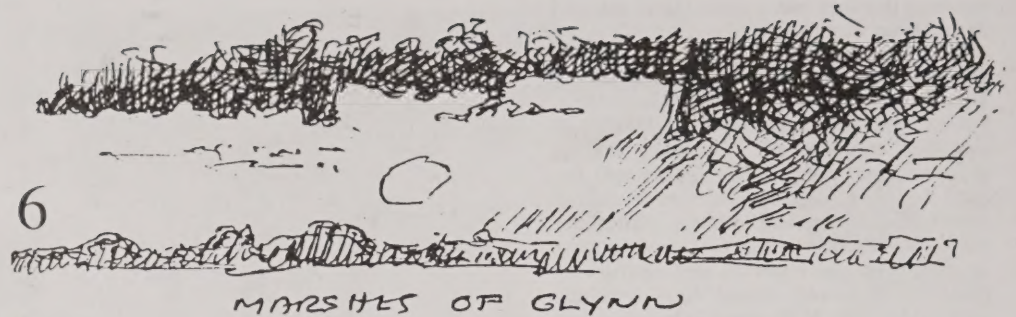 6
MARSHES OF GLYNN